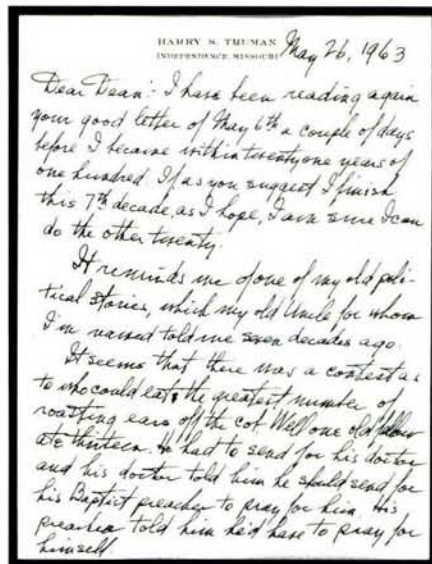 HARRY S. TRUMAN
INDEPENDENCE, MISSOURI
May 26, 1963
Dear Dean:- I have been reading again
your good letter of May 6th a couple of days
before I became within twenty one years of
one hundred. If as you suggest I finish
this 7th decade, as I hope, I am sure I can
do the other twenty.
It reminds me of one of my old poli-
tical stories, which my old Uncle for whom
I'm named told me seven decades ago.
It seems that there was a contest as
to who could eat the greatest number of
roasting ears off the cob. Well one old fellow
ate thirteen. He had to send for his doctor
and his doctor told him he should send for
his Baptist preacher to pray for him. His
preacher told him he'd have to pray for
himself.